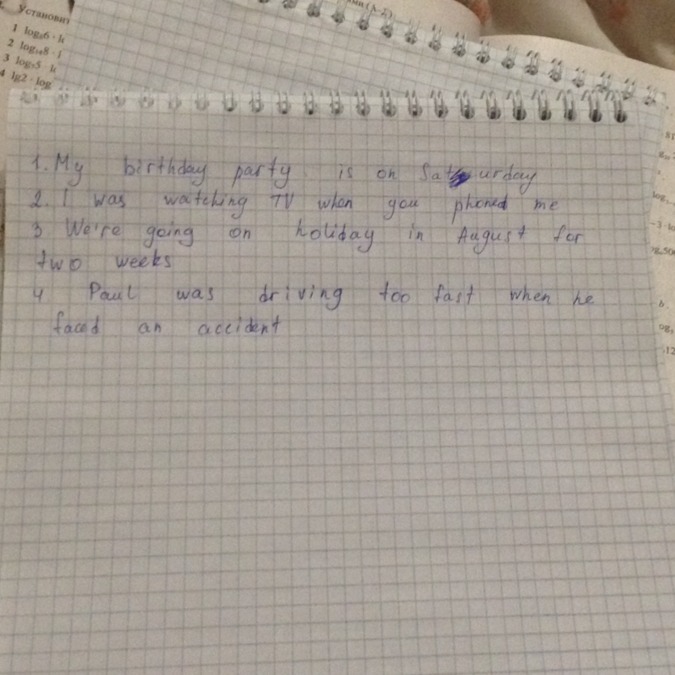 Установит
1 log₅6 · l
2 log₁₈8 ·
3 log₅5 ·
4 lg2 · log
1. My birthday party is on Saturday
2. I was watching TV when you phoned me
3 We're going on holiday in August for
two weeks
4 Paul was driving too fast when he
faced an accident